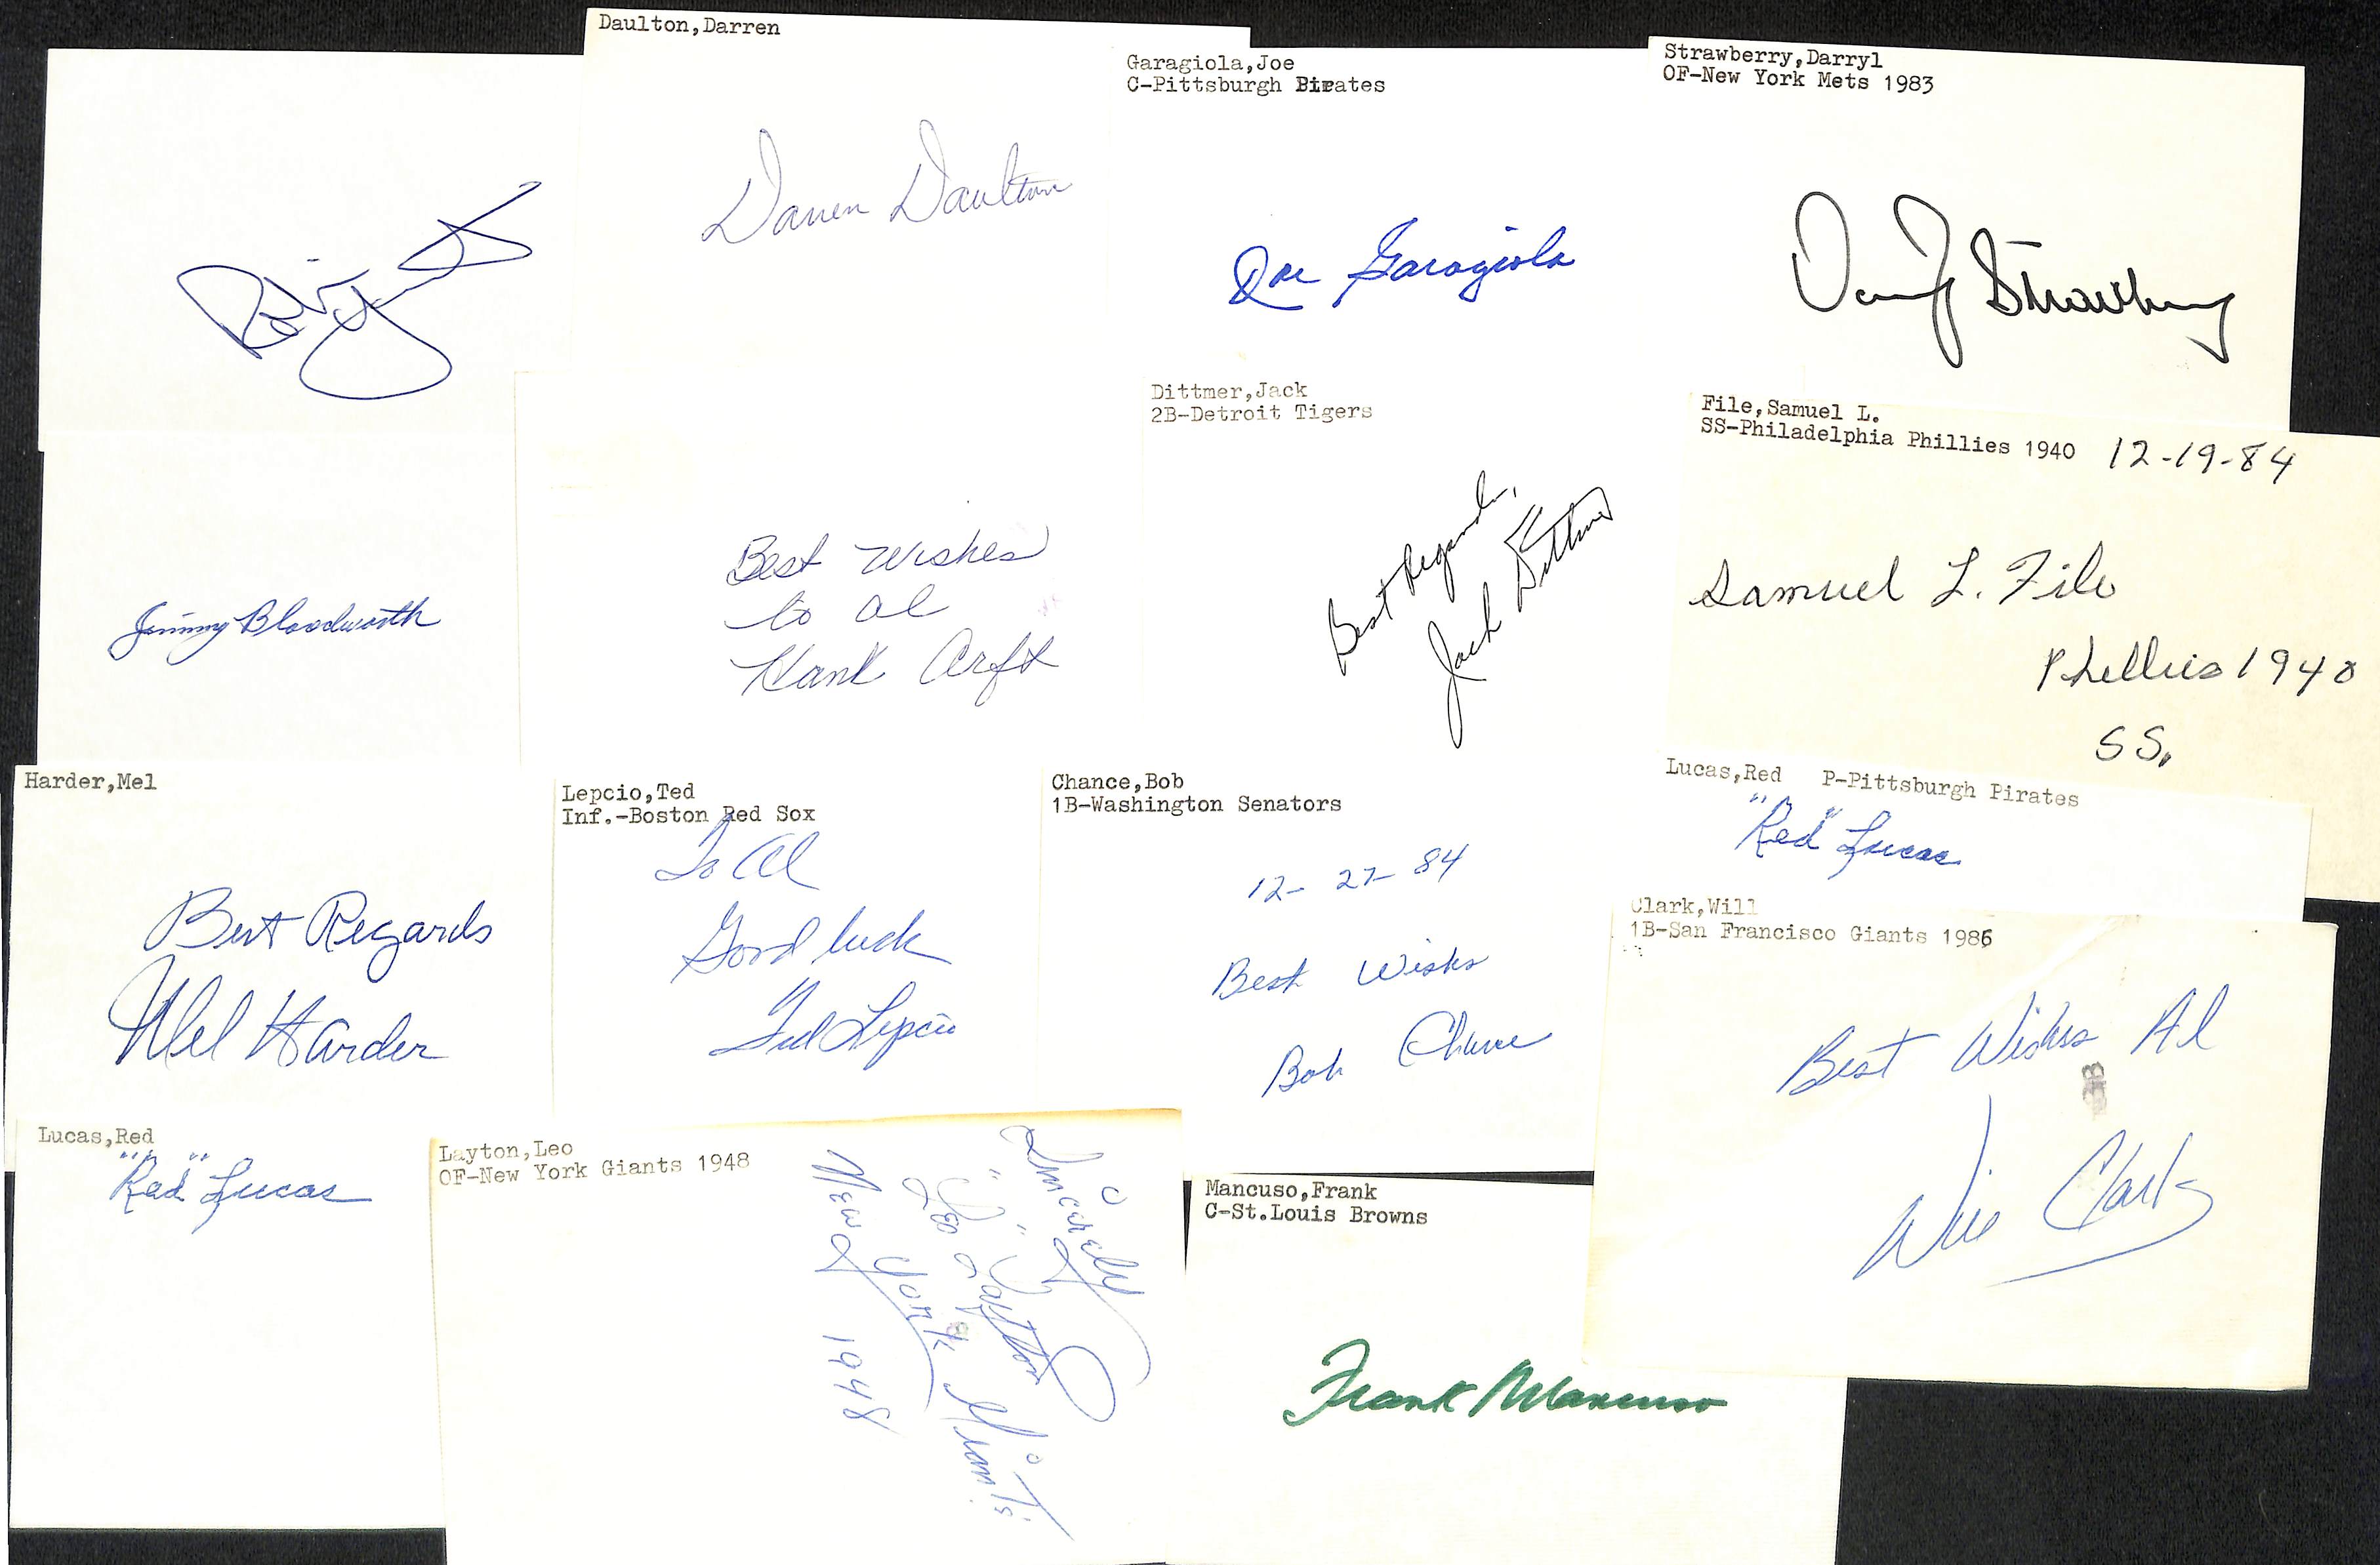 Daulton,Darren
Darren Daulton
Garagiola,Joe
C-Pittsburgh Pirates
Joe Garagiola
Strawberry,Darryl
OF-New York Mets 1983
Darryl Strawberry
Jimmy Bloodworth
Best Wishes
to Al
Hank Arft
Dittmer,Jack
2B-Detroit Tigers
Best Regards,
Jack Dittmer
File,Samuel L.
SS-Philadelphia Phillies 1940
12-19-84
Samuel L. File
Phillies 1940
SS.
Harder,Mel
Best Regards
Mel Harder
Lepcio,Ted
Inf.-Boston Red Sox
To Al
Good luck
Ted Lepcio
Chance,Bob
1B-Washington Senators
12-27-84
Best Wishes
Bob Chance
Lucas,Red P-Pittsburgh Pirates
"Red" Lucas
Clark,Will
1B-San Francisco Giants 1986
Best Wishes Al
Will Clark
Lucas,Red
"Red" Lucas
Layton,Leo
OF-New York Giants 1948
Sincerely
"Les" Layton
New York Giants
1948
Mancuso,Frank
C-St.Louis Browns
Frank Mancuso